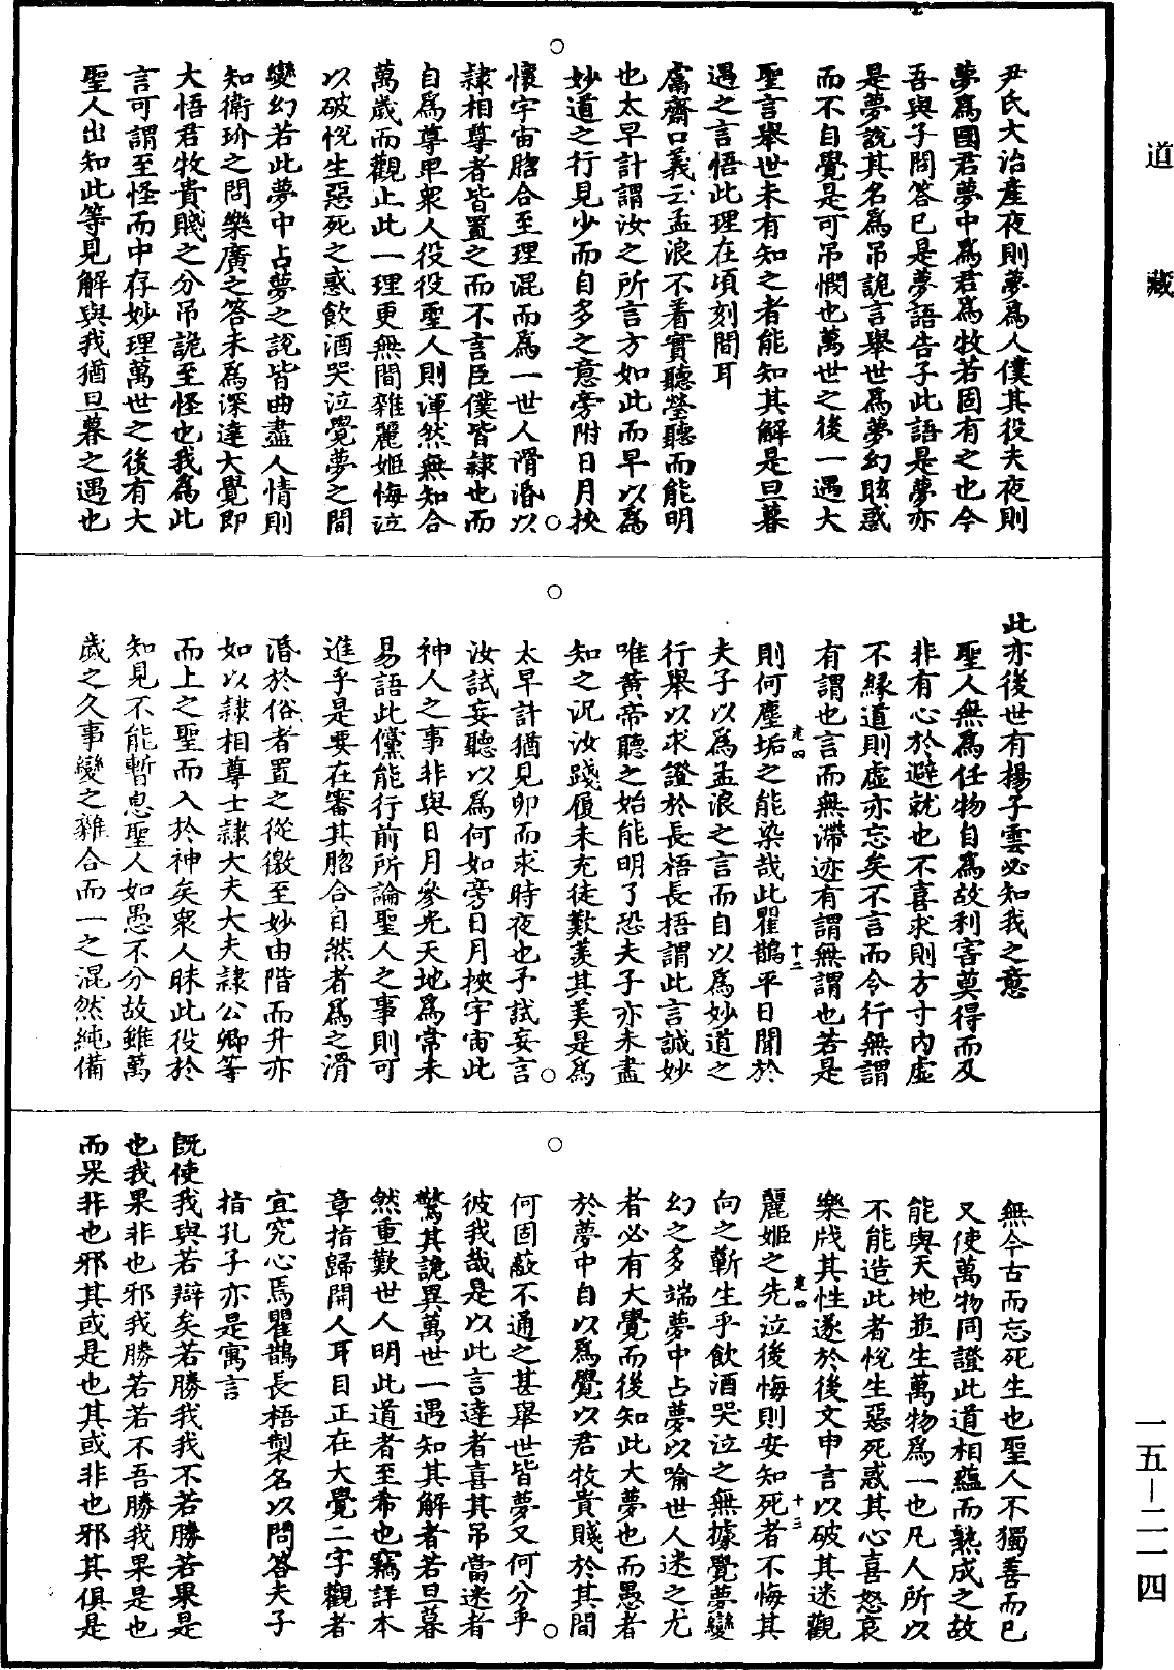 道藏
尹氏大治產夜則夢為人僕其役夫夜則
夢為國君夢中為君為牧若固有之也今
吾與子問答已是夢語告子此語是夢亦
是夢說其名為吊詭言舉世為夢幻眩惑
而不自覺是可吊憫也萬世之後一遇大
聖言舉世未有知之者能知其解是旦暮
遇之言悟此理在頃刻間耳
鬳齋口義云孟浪不着實聽瑩聽而能明
也太早計謂汝之所言方如此而早以為
妙道之行見少而自多之意旁附日月挾
懷宇宙脗合至理混而為一世人滑湣以
隸相尊者皆置之而不言臣僕皆隸也而
自為尊卑衆人役役聖人則渾然無知合
萬歲而觀止此一理更無間雜麗姬悔泣
以破悅生惡死之惑飲酒哭泣覺夢之間
變幻若此夢中占夢之說皆曲盡人情則
知衛玠之問樂廣之答未為深達大覺即
大悟君牧貴賤之分吊詭至怪也我為此
言可謂至怪而中存妙理萬世之後有大
聖人出知此等見解與我猶旦暮之遇也
此亦後世有揚子雲必知我之意
聖人無為任物自為故利害莫得而及
非有心於避就也不喜求則方寸內虛
不緣道則虛亦忘矣不言而令行無謂
有謂也言而無滯迹有謂無謂也若是
則何塵垢之能染哉此瞿鵲平日聞於
夫子以為孟浪之言而自以為妙道之
行舉以求證於長梧長梧謂此言誠妙
唯黃帝聽之始能明了恐夫子亦未盡
知之况汝踐履未充徒歎羨其美是為
太早計猶見卵而求時夜也予試妄言
汝試妄聽以為何如旁日月挾宇宙此
神人之事非與日月參光天地為常未
易語此儻能行前所論聖人之事則可
進乎是要在審其脗合自然者為之滑
湣於俗者置之從徼至妙由階而升亦
如以隸相尊士隸大夫大夫隸公卿等
而上之聖而入於神矣衆人昧此役於
知見不能暫息聖人如愚不分故雖萬
歲之久事變之雜合而一之混然純備
無今古而忘死生也聖人不獨善而已
又使萬物同證此道相蘊而熟成之故
能與天地並生萬物為一也凡人所以
不能造此者悅生惡死惑其心喜怒哀
樂戕其性遂於後文申言以破其迷觀
麗姬之先泣後悔則安知死者不悔其
向之蘄生乎飲酒哭泣之無據覺夢變
幻之多端夢中占夢以喻世人迷之尤
者必有大覺而後知此大夢也而愚者
於夢中自以為覺以君牧貴賤於其間
何固蔽不通之甚舉世皆夢又何分乎
彼我哉是以此言達者喜其吊當迷者
驚其詭異萬世一遇知其解者若旦暮
然重歎世人明此道者至希也竊詳本
章指歸開人耳目正在大覺二字觀者
宜究心焉瞿鵲長梧製名以問答夫子
指孔子亦是寓言
既使我與若辯矣若勝我我不若勝若果是
也我果非也邪我勝若若不吾勝我果是也
而果非也邪其或是也其或非也邪其俱是
十二
十三
一五－二一四